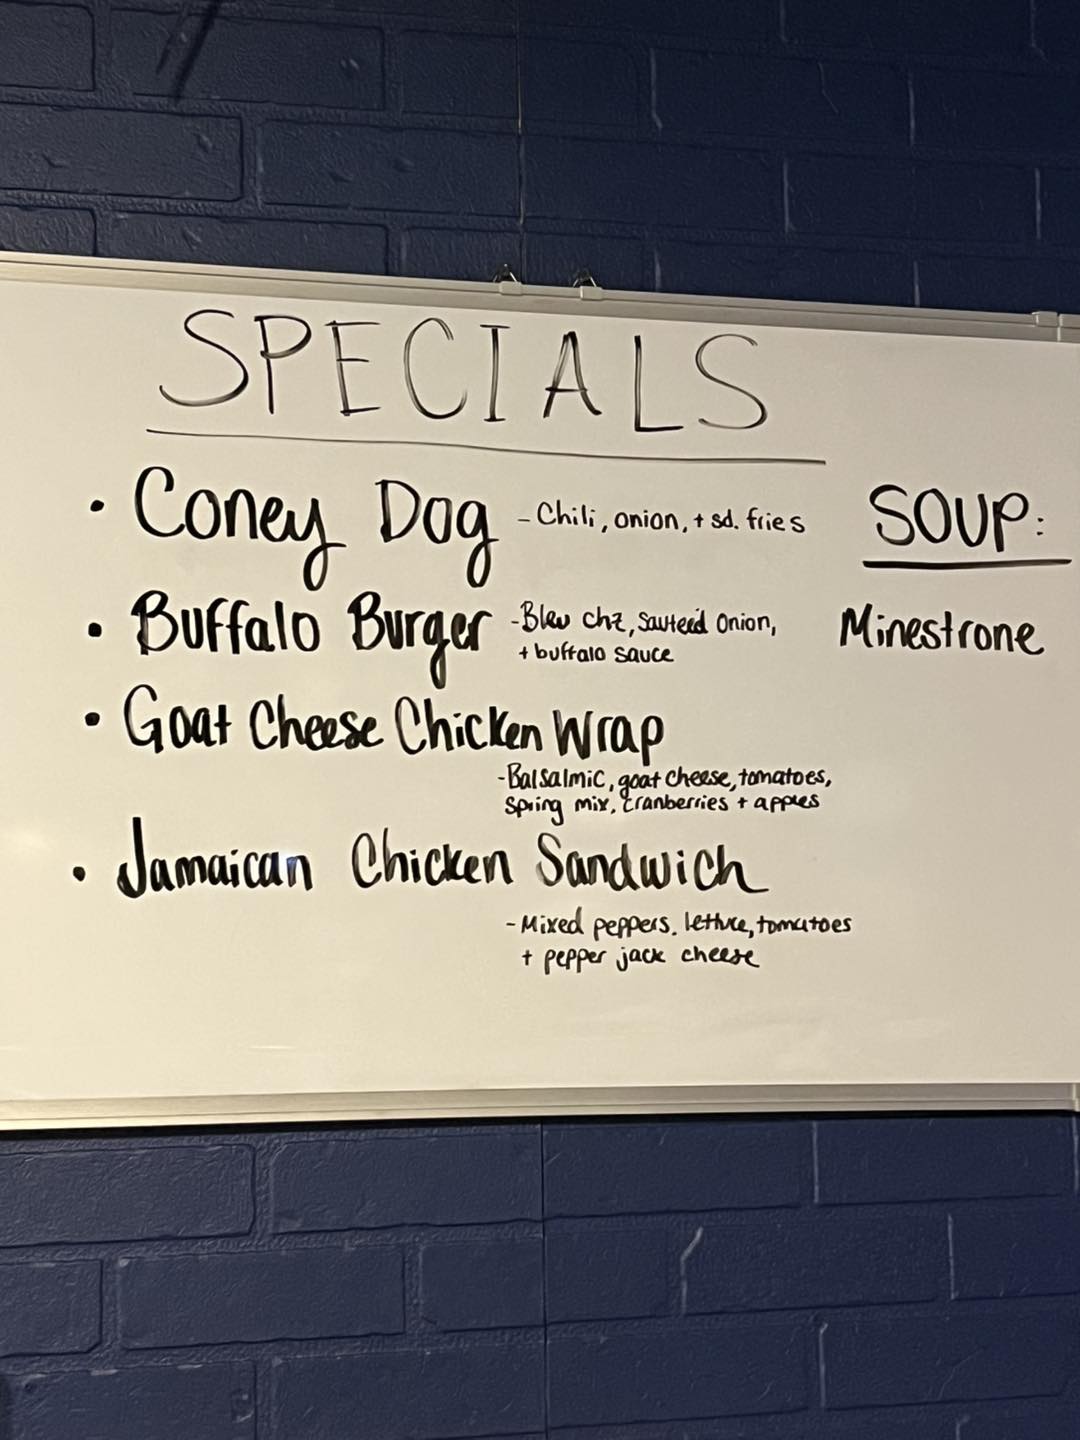 SPECIALS
• Coney Dog - Chili, onion, + sd. fries
• Buffalo Burger - Bleu chz, Sauteéd Onion,
+ buffalo sauce
• Goat Cheese Chicken Wrap
- Balsalmic, goat cheese, tomatoes,
Spring mix, cranberries + apples
• Jamaican Chicken Sandwich
- Mixed peppers, lettuce, tomatoes
+ pepper jack cheese
SOUP:
Minestrone